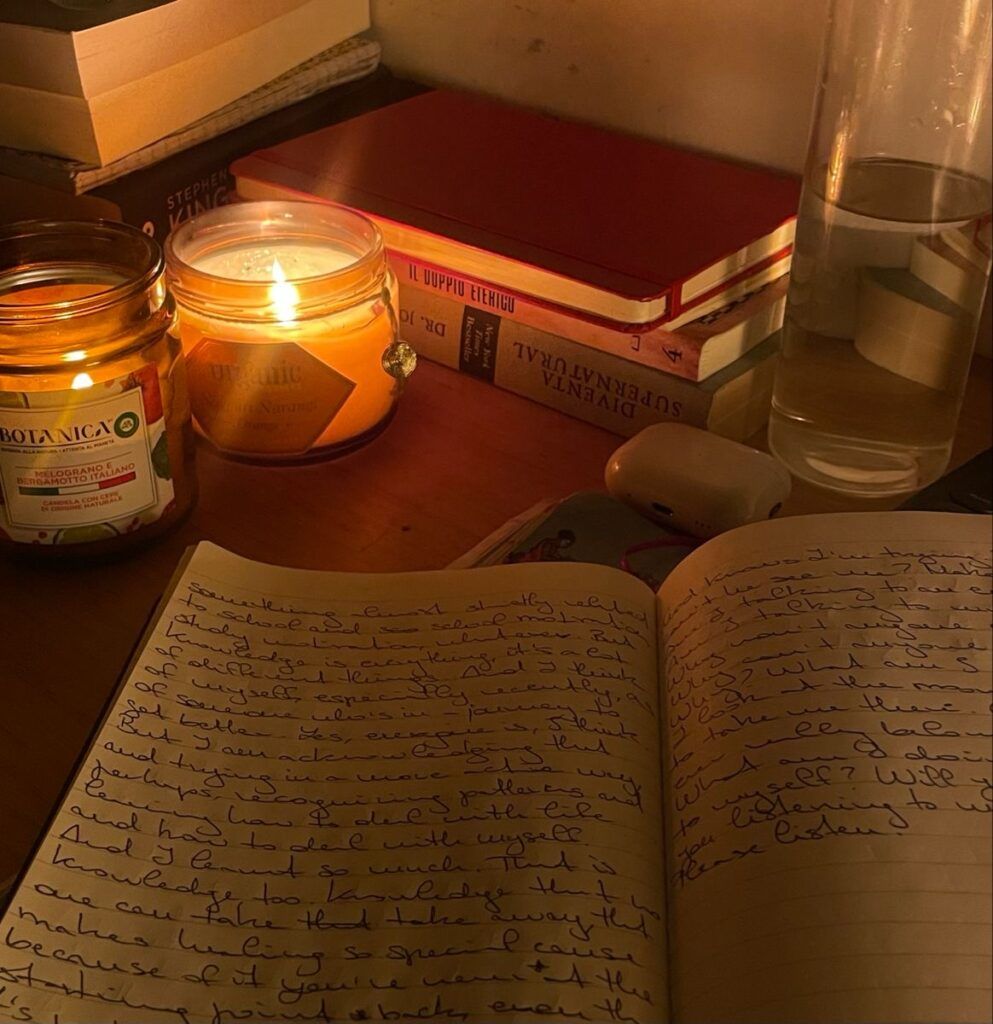 STEPHEN
KING
IL DOPPIO ETERICO
4
DR. JO
New York
Times
Bestseller
DIVENTA
SUPERNATURAL
organic
BOTANICA
MELOGRANO E
BERGAMOTTO ITALIANO
CANDELA CON CERE
DI ORIGINE NATURALE
something almost strictly related
to school and so school motivation
study motivation whatever. But
knowledge is everything, it's a lot
of different things. And I think
of myself, especially recently, as
of someone who is in journey to
get better. Yes, everyone is, I think
But I am acknowledging that
and trying in a more way
perhaps, recognizing patterns and
learning how to deal with life
and how to deal with myself
And I learnt so much. That is
knowledge, too. Knowledge that no
one can take that take away that
makes healing so special cause
because of it you're never at the
starting point back, even th
knows I'm trying
he see me?
talking to
talking to
won't anyone
can't anyone
Why? What am I
at the moon
to take me there
really
What am I doin
to myself? Will y
you listening to
Please listen.